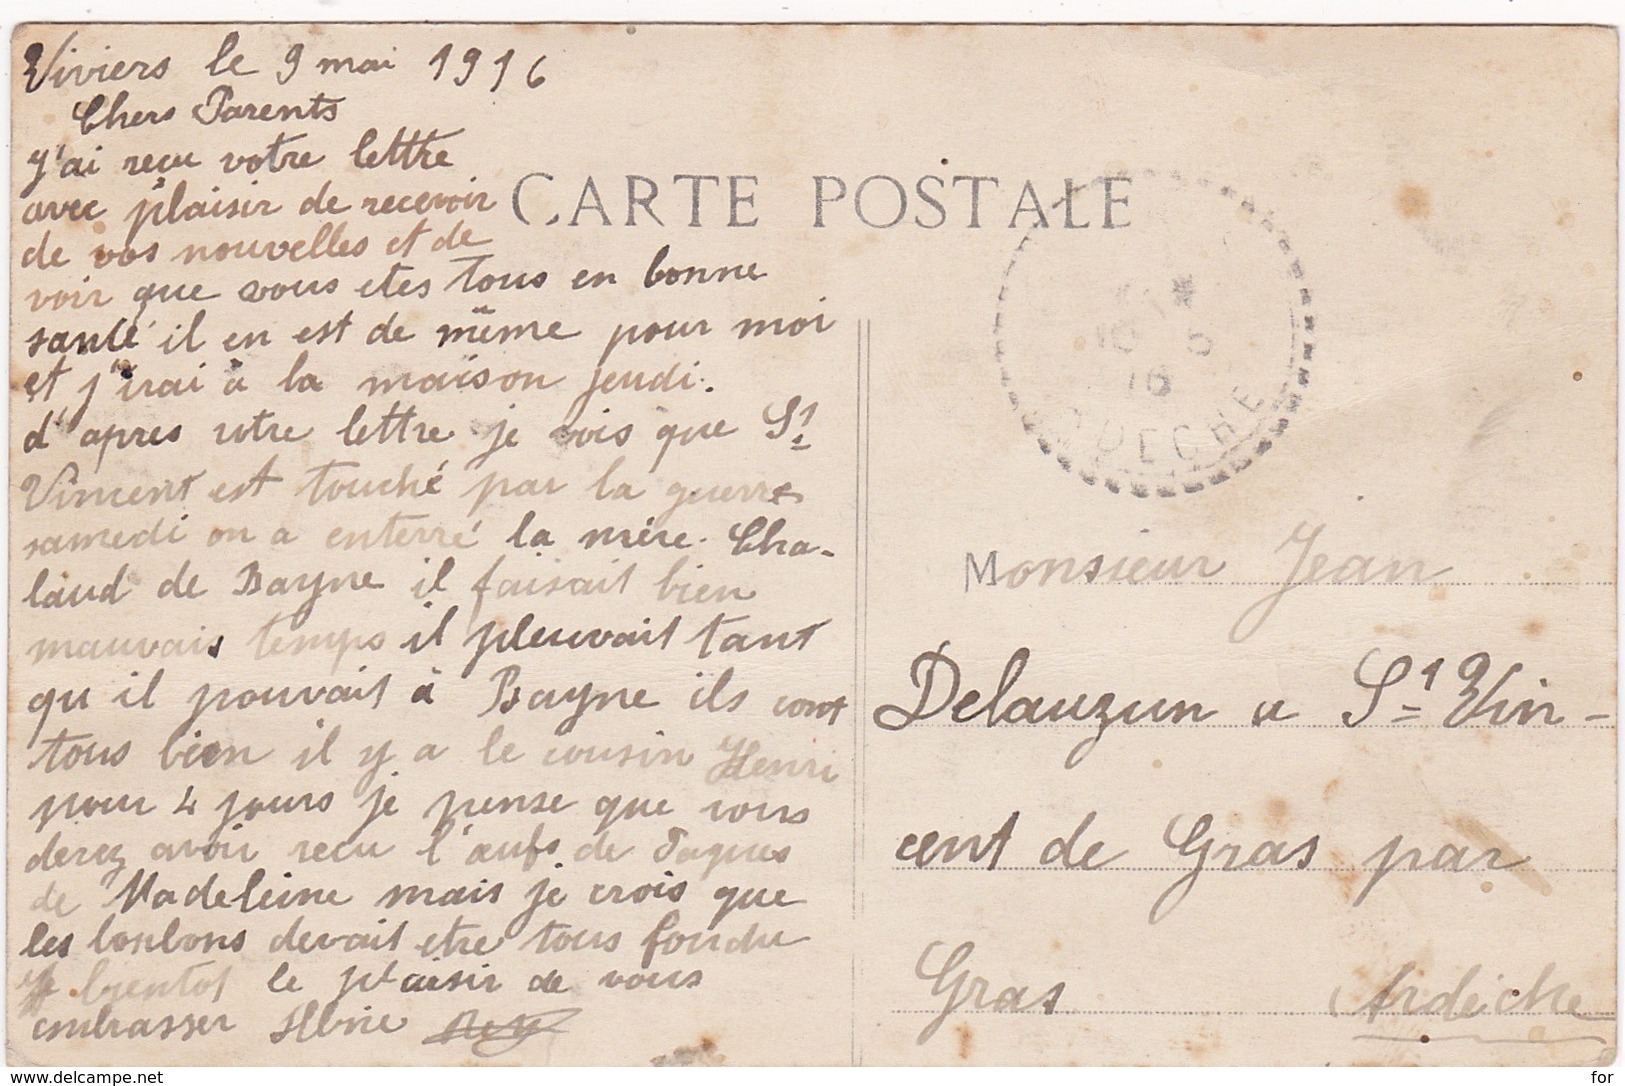 Viviers le 9 mai 1916
Chers Parents
J'ai reçu votre lettre
avec plaisir de recevoir
de vos nouvelles et de
voir que vous etes tous en bonne
santé il en est de même pour moi
et j'irai à la maison jeudi.
d'apres votre lettre je vois que St
Vincent est touché par la guerre
samedi on a enterré la mère Cha-
laud de Bayne il faisait bien
mauvais temps il pleuvait tant
qu il pouvait à Bayne ils vont
tous bien il y a le cousin Henri
pour 4 jours je pense que vous
derez avoir recu l'œufs de Paques
de Madeleine mais je crois que
les bonbons devait etre tous fondu
bientot le plaisir de vous
embrasser
CARTE POSTALE
10 5
16
ARDECHE
Monsieur Jean
Delauzun a St Vin-
cent de Gras par
Gras Ardèche
www.delcampe.net
for